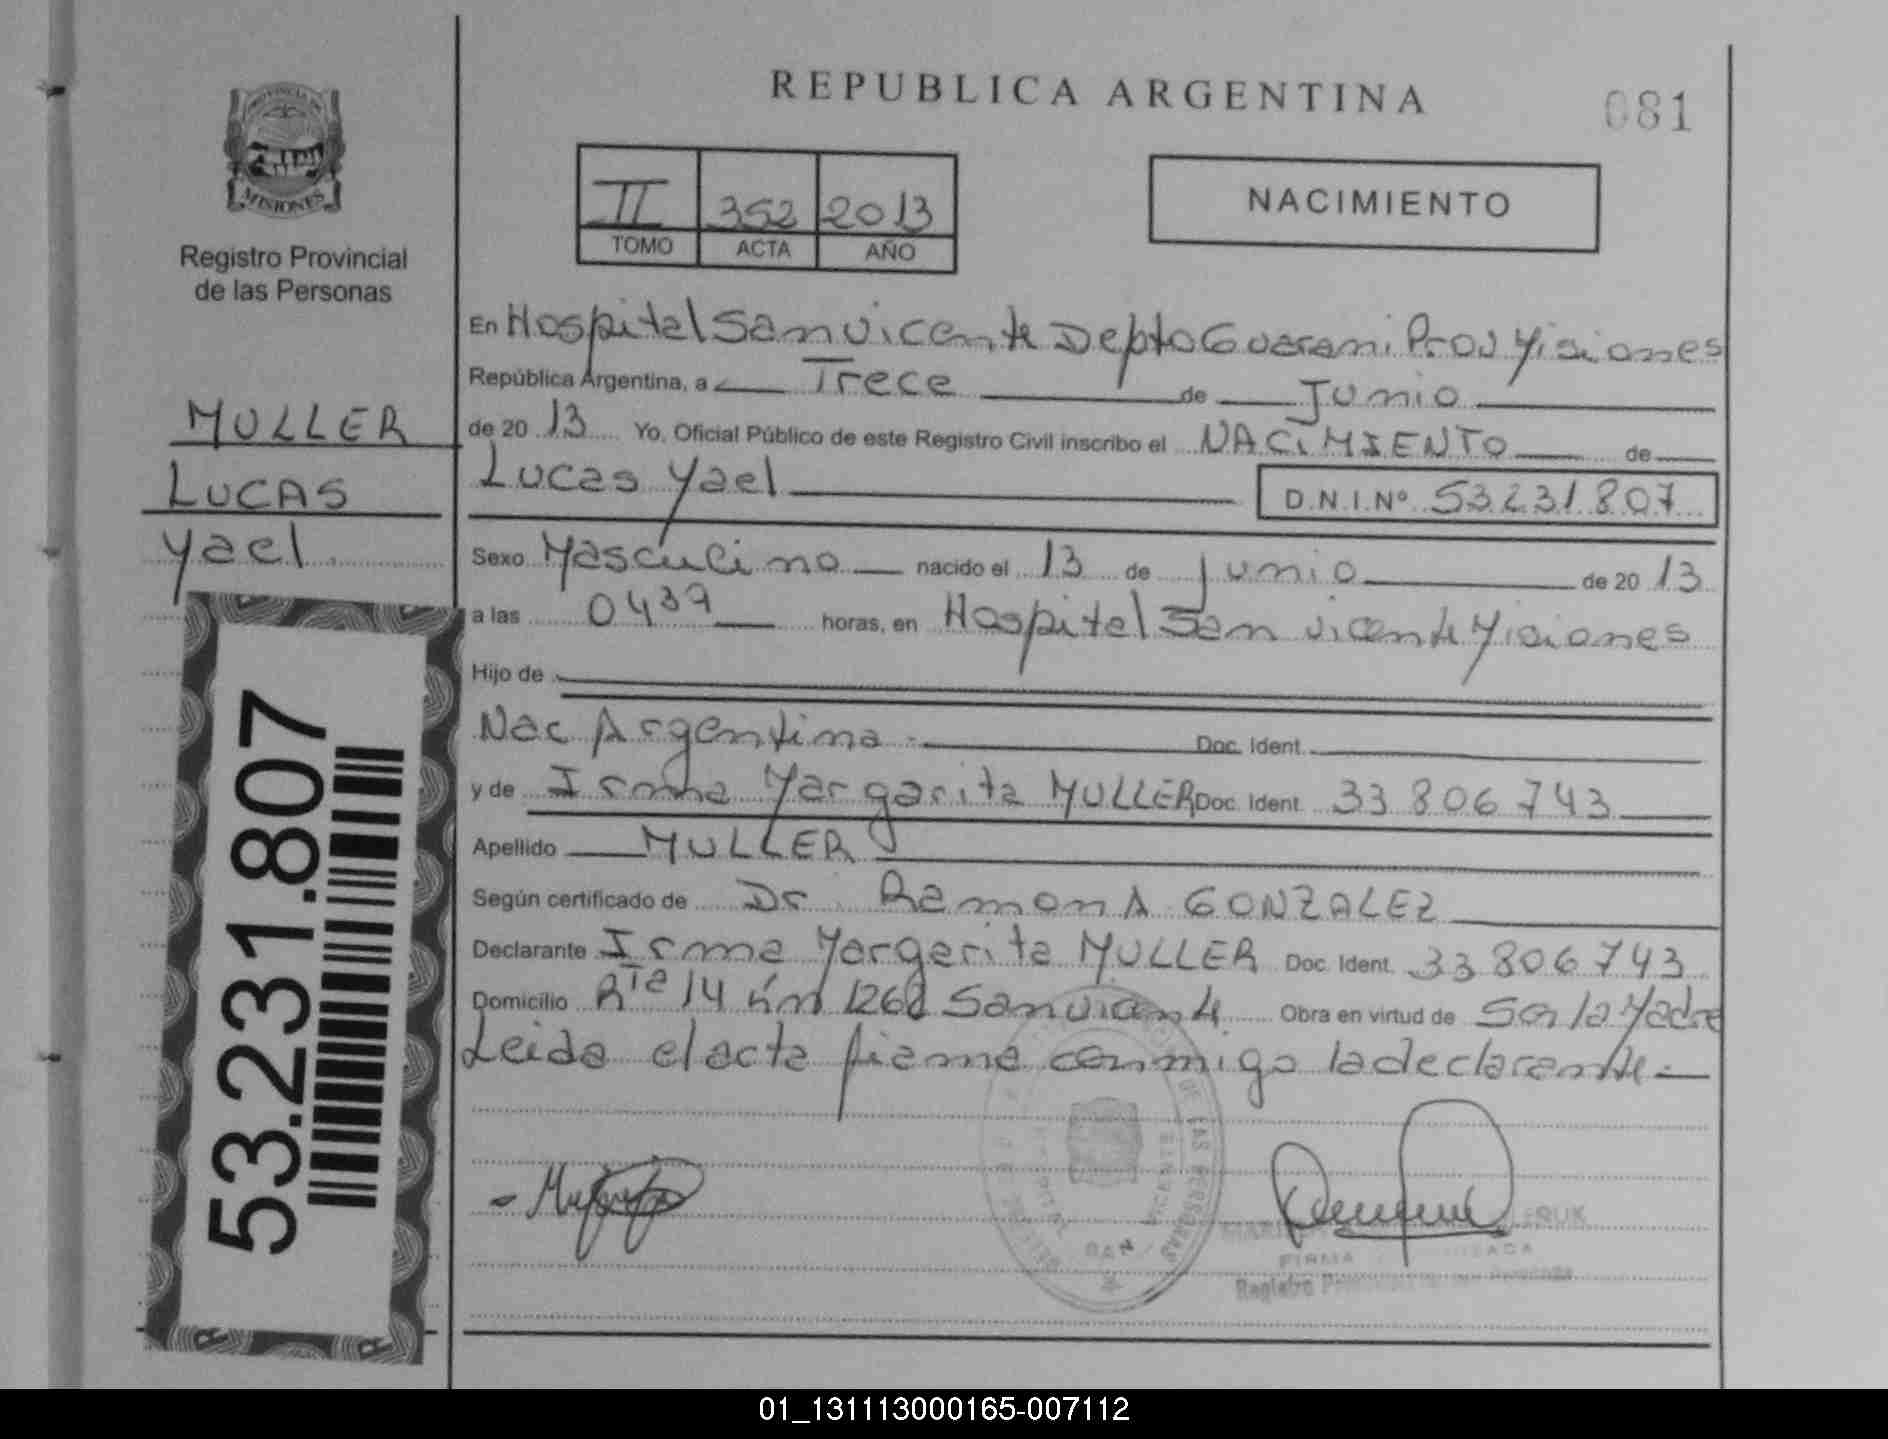 PROVINCIA DE
MISIONES
Registro Provincial
de las Personas
MULLER
LUCAS
Yael
53.231.807
REPUBLICA ARGENTINA
081
II 352 2013
TOMO ACTA AÑO
NACIMIENTO
En Hospital San Vicente Depto Guarani Prov Misiones
República Argentina, a Trece de Junio
de 20 13 Yo, Oficial Público de este Registro Civil inscribo el NACIMIENTO de
Lucas Yael D.N.I.Nº 53.231.807
Sexo Masculino nacido el 13 de Junio de 20 13
a las 0439 horas, en Hospital San Vicente Misiones
Hijo de
Nac Argentina Doc. Ident.
y de Irma Margarita MULLER Doc. Ident. 33 806 743
Apellido MULLER
Según certificado de Dr. Ramon A GONZALEZ
Declarante Irma Margarita MULLER Doc. Ident. 33 806 743
Domicilio Rta 14 km 1268 San Vicente Obra en virtud de Ser la Madre
Leida el acta firma conmigo la declarante.
DE LAS PERSONAS
HOSPITAL SAN VICENTE
FIRMA
Registro
01_131113000165-007112